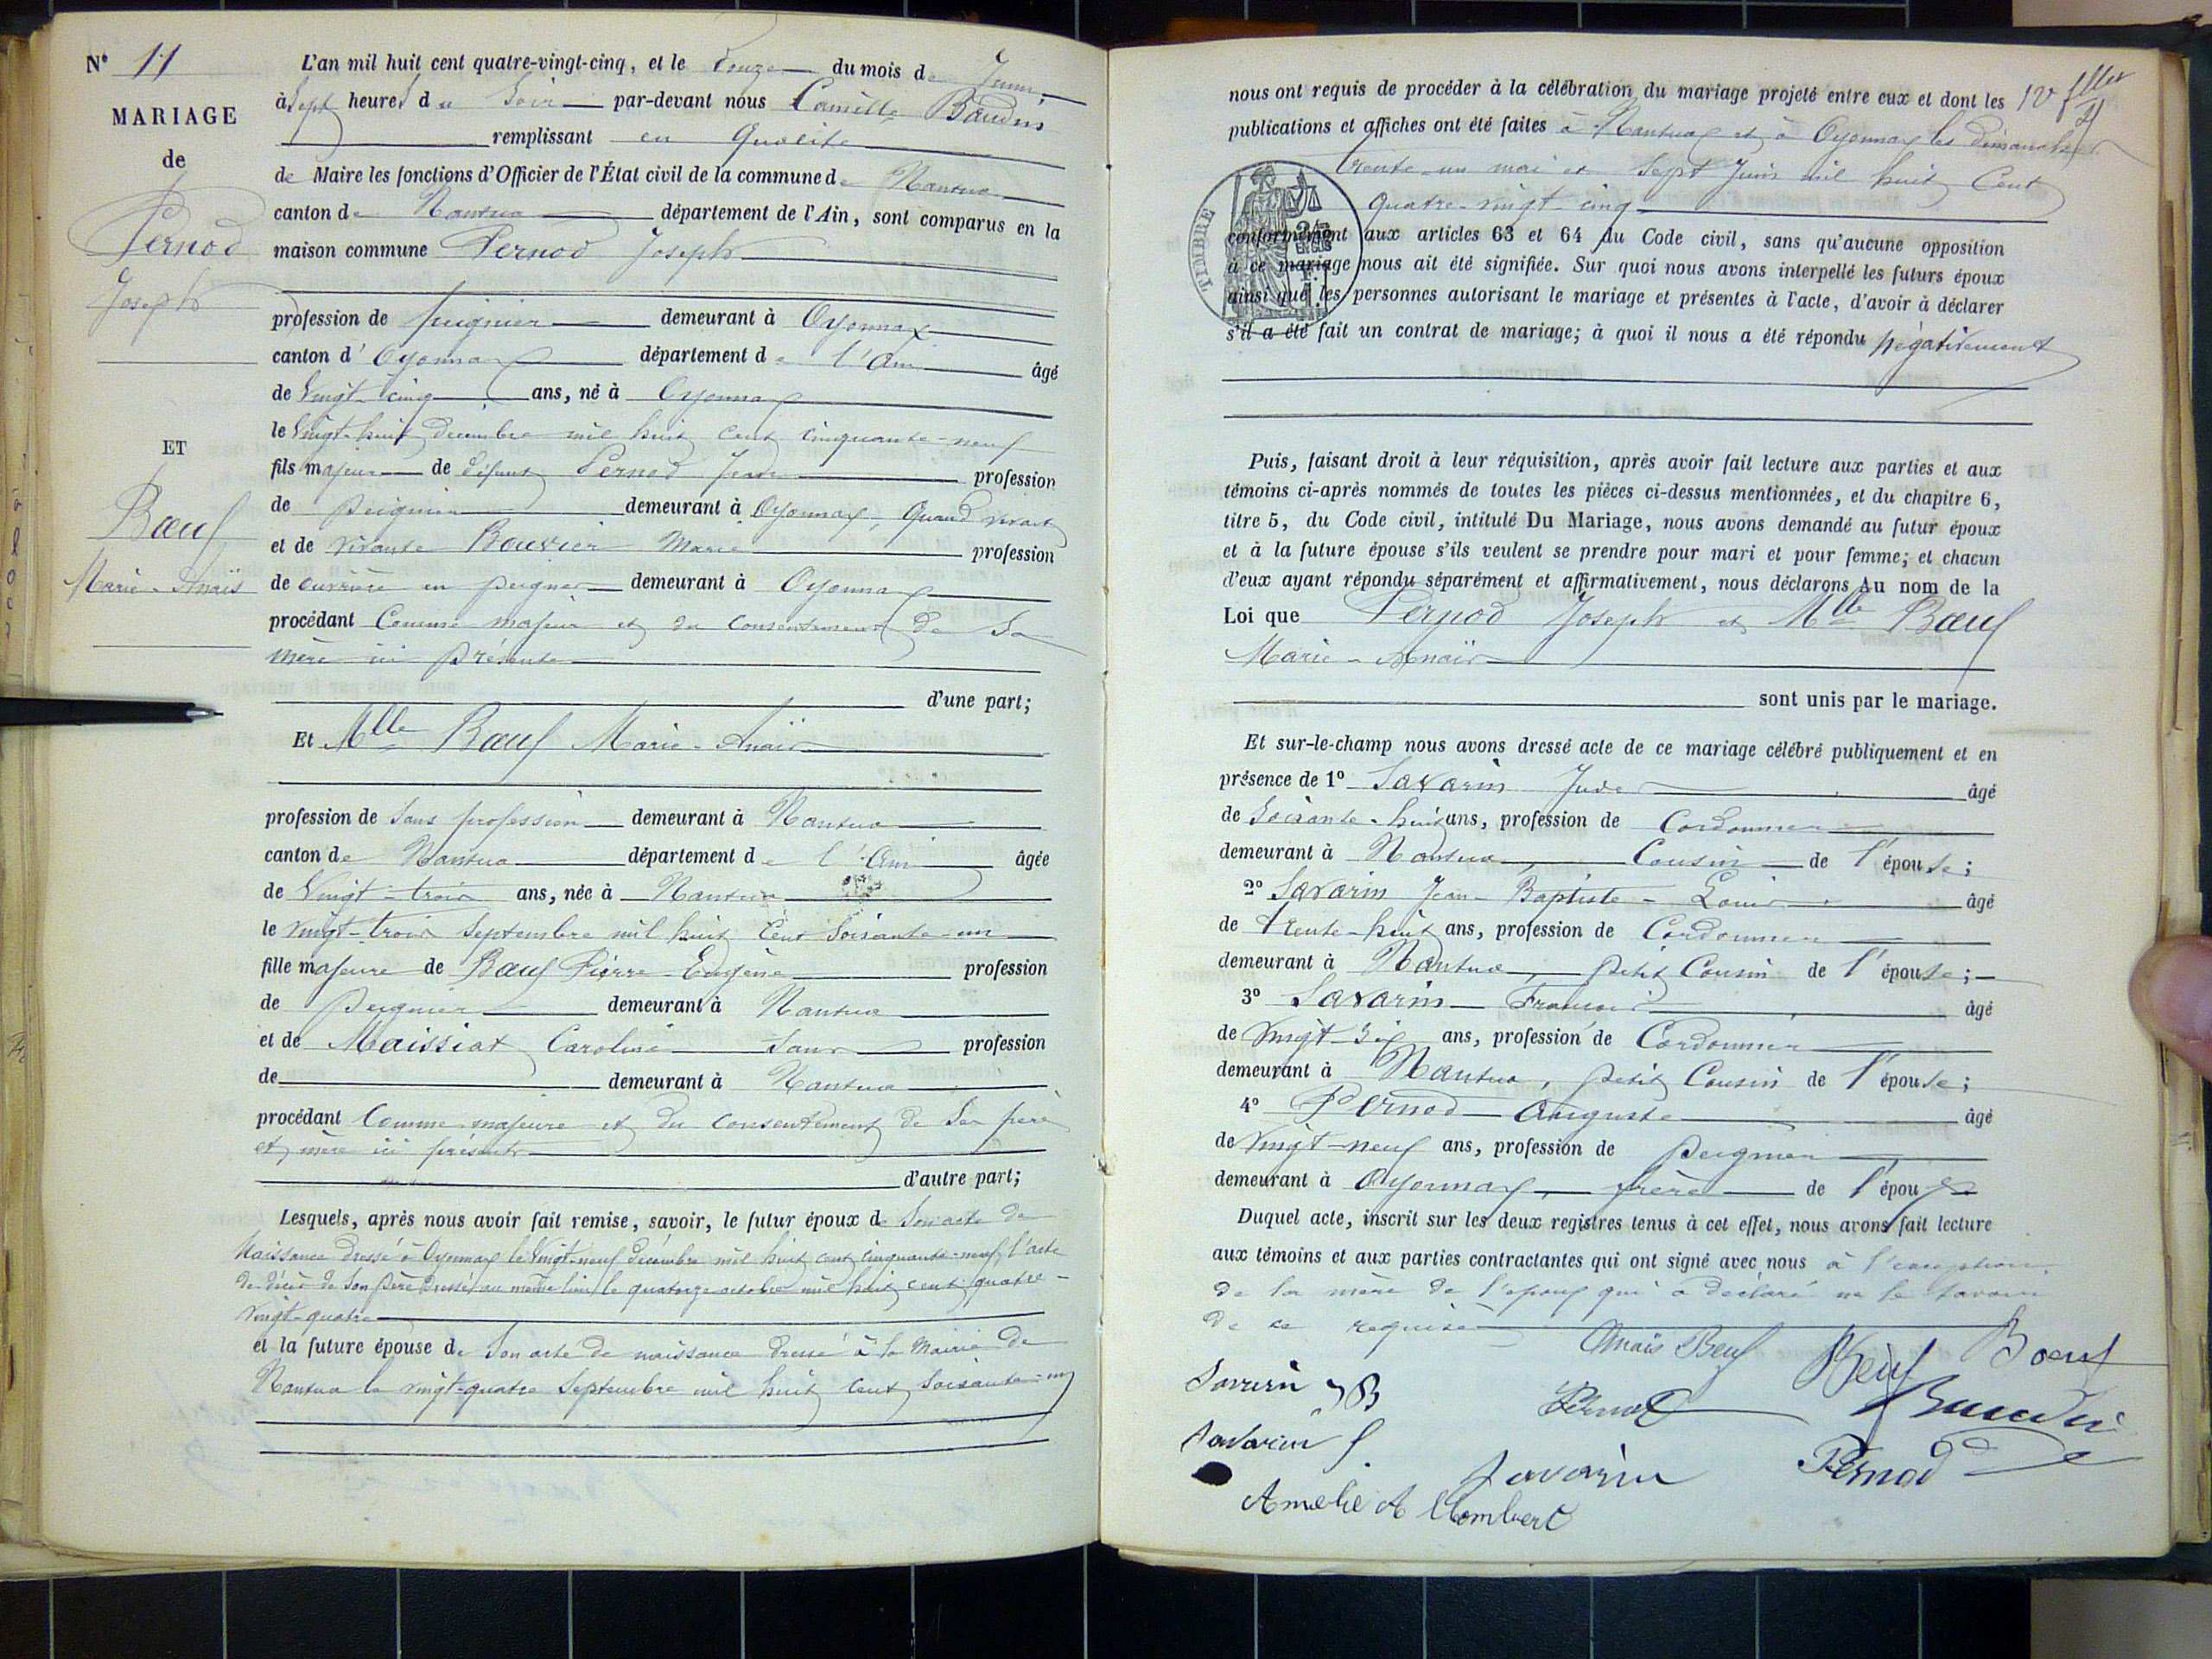 N° 11
MARIAGE
de
Pernod
Joseph
ET
Bœuf
Marie-Anaïs
L'an mil huit cent quatre-vingt-cinq, et le douze du mois de Juin,
à Sept heures du Soir par-devant nous Camille Baudin
remplissant en qualité
de Maire les fonctions d'Officier de l'État civil de la commune de Nantua
canton de Nantua département de l'Ain, sont comparus en la
maison commune Pernod Joseph
profession de peignier demeurant à Oyonnax
canton d'Oyonnax département de l'Ain âgé
de Vingt-cinq ans, né à Oyonnax
le Vingt-huit décembre mil huit cent cinquante-neuf
fils majeur de défunt Pernod profession
de peignier demeurant à Oyonnax, quand vivait
et de vivante Bouvier Marie profession
de ouvrière en peignes demeurant à Oyonnax
procédant Comme majeur et du consentement de Sa
mère ici présente
d'une part;
Et Mlle Bœuf Marie-Anaïs
profession de Sans profession demeurant à Nantua
canton de Nantua département de l'Ain âgée
de Vingt-trois ans, née à Nantua
le vingt-trois Septembre mil huit cent soixante-un
fille majeure de Bœuf Pierre-Eugène profession
de peignier demeurant à Nantua
et de Maissiat Caroline Sans profession
de demeurant à Nantua
procédant Comme majeure et du consentement de Ses père
et mère ici présents
d'autre part;
Lesquels, après nous avoir fait remise, savoir, le futur époux de Son acte de
Naissance dressé à Oyonnax le Vingt-neuf décembre mil huit cent cinquante-neuf, l'acte
de décès de Son père dressé au même lieu le quatorze octobre mil huit cent quatre-
vingt-quatre
et la future épouse de Son acte de naissance dressé à la Mairie de
Nantua le vingt-quatre Septembre mil huit cent soixante-un
nous ont requis de procéder à la célébration du mariage projeté entre eux et dont les
publications et affiches ont été faites à Nantua et à Oyonnax les dimanches
trente-un mai et Sept Juin mil huit Cent
quatre-vingt-cinq
TIMBRE
conformément aux articles 63 et 64 du Code civil, sans qu'aucune opposition
à ce mariage nous ait été signifiée. Sur quoi nous avons interpellé les futurs époux
ainsi que les personnes autorisant le mariage et présentes à l'acte, d'avoir à déclarer
s'il a été fait un contrat de mariage; à quoi il nous a été répondu négativement
Puis, faisant droit à leur réquisition, après avoir fait lecture aux parties et aux
témoins ci-après nommés de toutes les pièces ci-dessus mentionnées, et du chapitre 6,
titre 5, du Code civil, intitulé Du Mariage, nous avons demandé au futur époux
et à la future épouse s'ils veulent se prendre pour mari et pour femme; et chacun
d'eux ayant répondu séparément et affirmativement, nous déclarons Au nom de la
Loi que Pernod Joseph et Mlle Bœuf
Marie-Anaïs
sont unis par le mariage.
Et sur-le-champ nous avons dressé acte de ce mariage célébré publiquement et en
présence de 1° Savarin Jude âgé
de Soixante-huit ans, profession de Cordonnier
demeurant à Nantua, Cousin de l'épouse;
2° Savarin Jean-Baptiste-Louis âgé
de trente-huit ans, profession de Cordonnier
demeurant à Nantua, petit Cousin de l'épouse;
3° Savarin François âgé
de vingt-six ans, profession de Cordonnier
demeurant à Nantua, petit Cousin de l'épouse;
4° Pernod Auguste âgé
de vingt-neuf ans, profession de peignier
demeurant à Oyonnax, frère de l'époux
Duquel acte, inscrit sur les deux registres tenus à cet effet, nous avons fait lecture
aux témoins et aux parties contractantes qui ont signé avec nous à l'exception
de la mère de l'époux qui a déclaré ne le savoir
de ce requise
Anaïs Beuf Bœuf
Savarin JB Pernod Baudin
Savarin f Savarin Pernod
Amélie Allombert